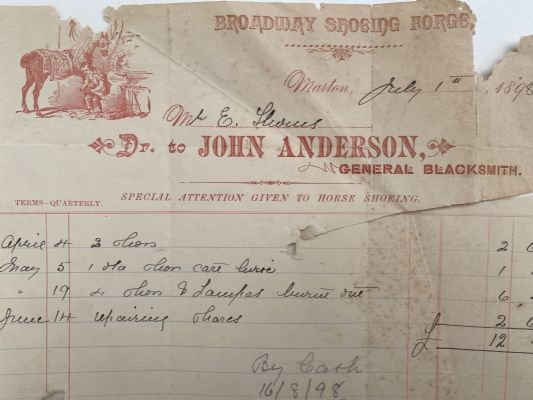 BROADWAY SHOEING FORGE,
Marton, July 1st 1898
Mr E. Thoms
Dr. to JOHN ANDERSON,
GENERAL BLACKSMITH.
TERMS—QUARTERLY. SPECIAL ATTENTION GIVEN TO HORSE SHOEING.
April 4 2 shoes 2 6
May 5 1 old shoe 1
" 19 4 shoes & Lampas burnt out 6
June 14 repairing shares 2 6
£ 12
By Cash
16/8/98